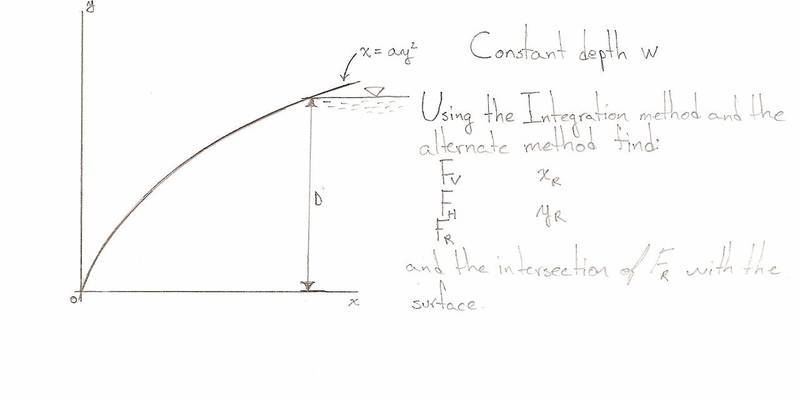 y
x = ay²
Constant depth w
Using the Integration method and the
alternate method find:
F_V x_R
F_H y_R
F_R
and the intersection of F_R with the
surface.
D
0 x